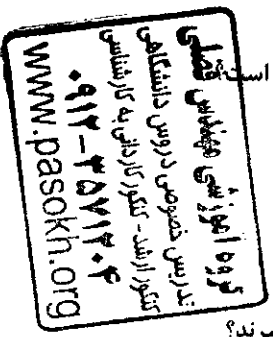 است؟
گروه آموزشی مهندس فضلی
تدریس خصوصی دروس دانشگاهی
کنکور ارشد - کنکور کاردانی به کارشناسی
۰۹۱۲-۳۵۷۱۲۰۴
www.pasokh.org